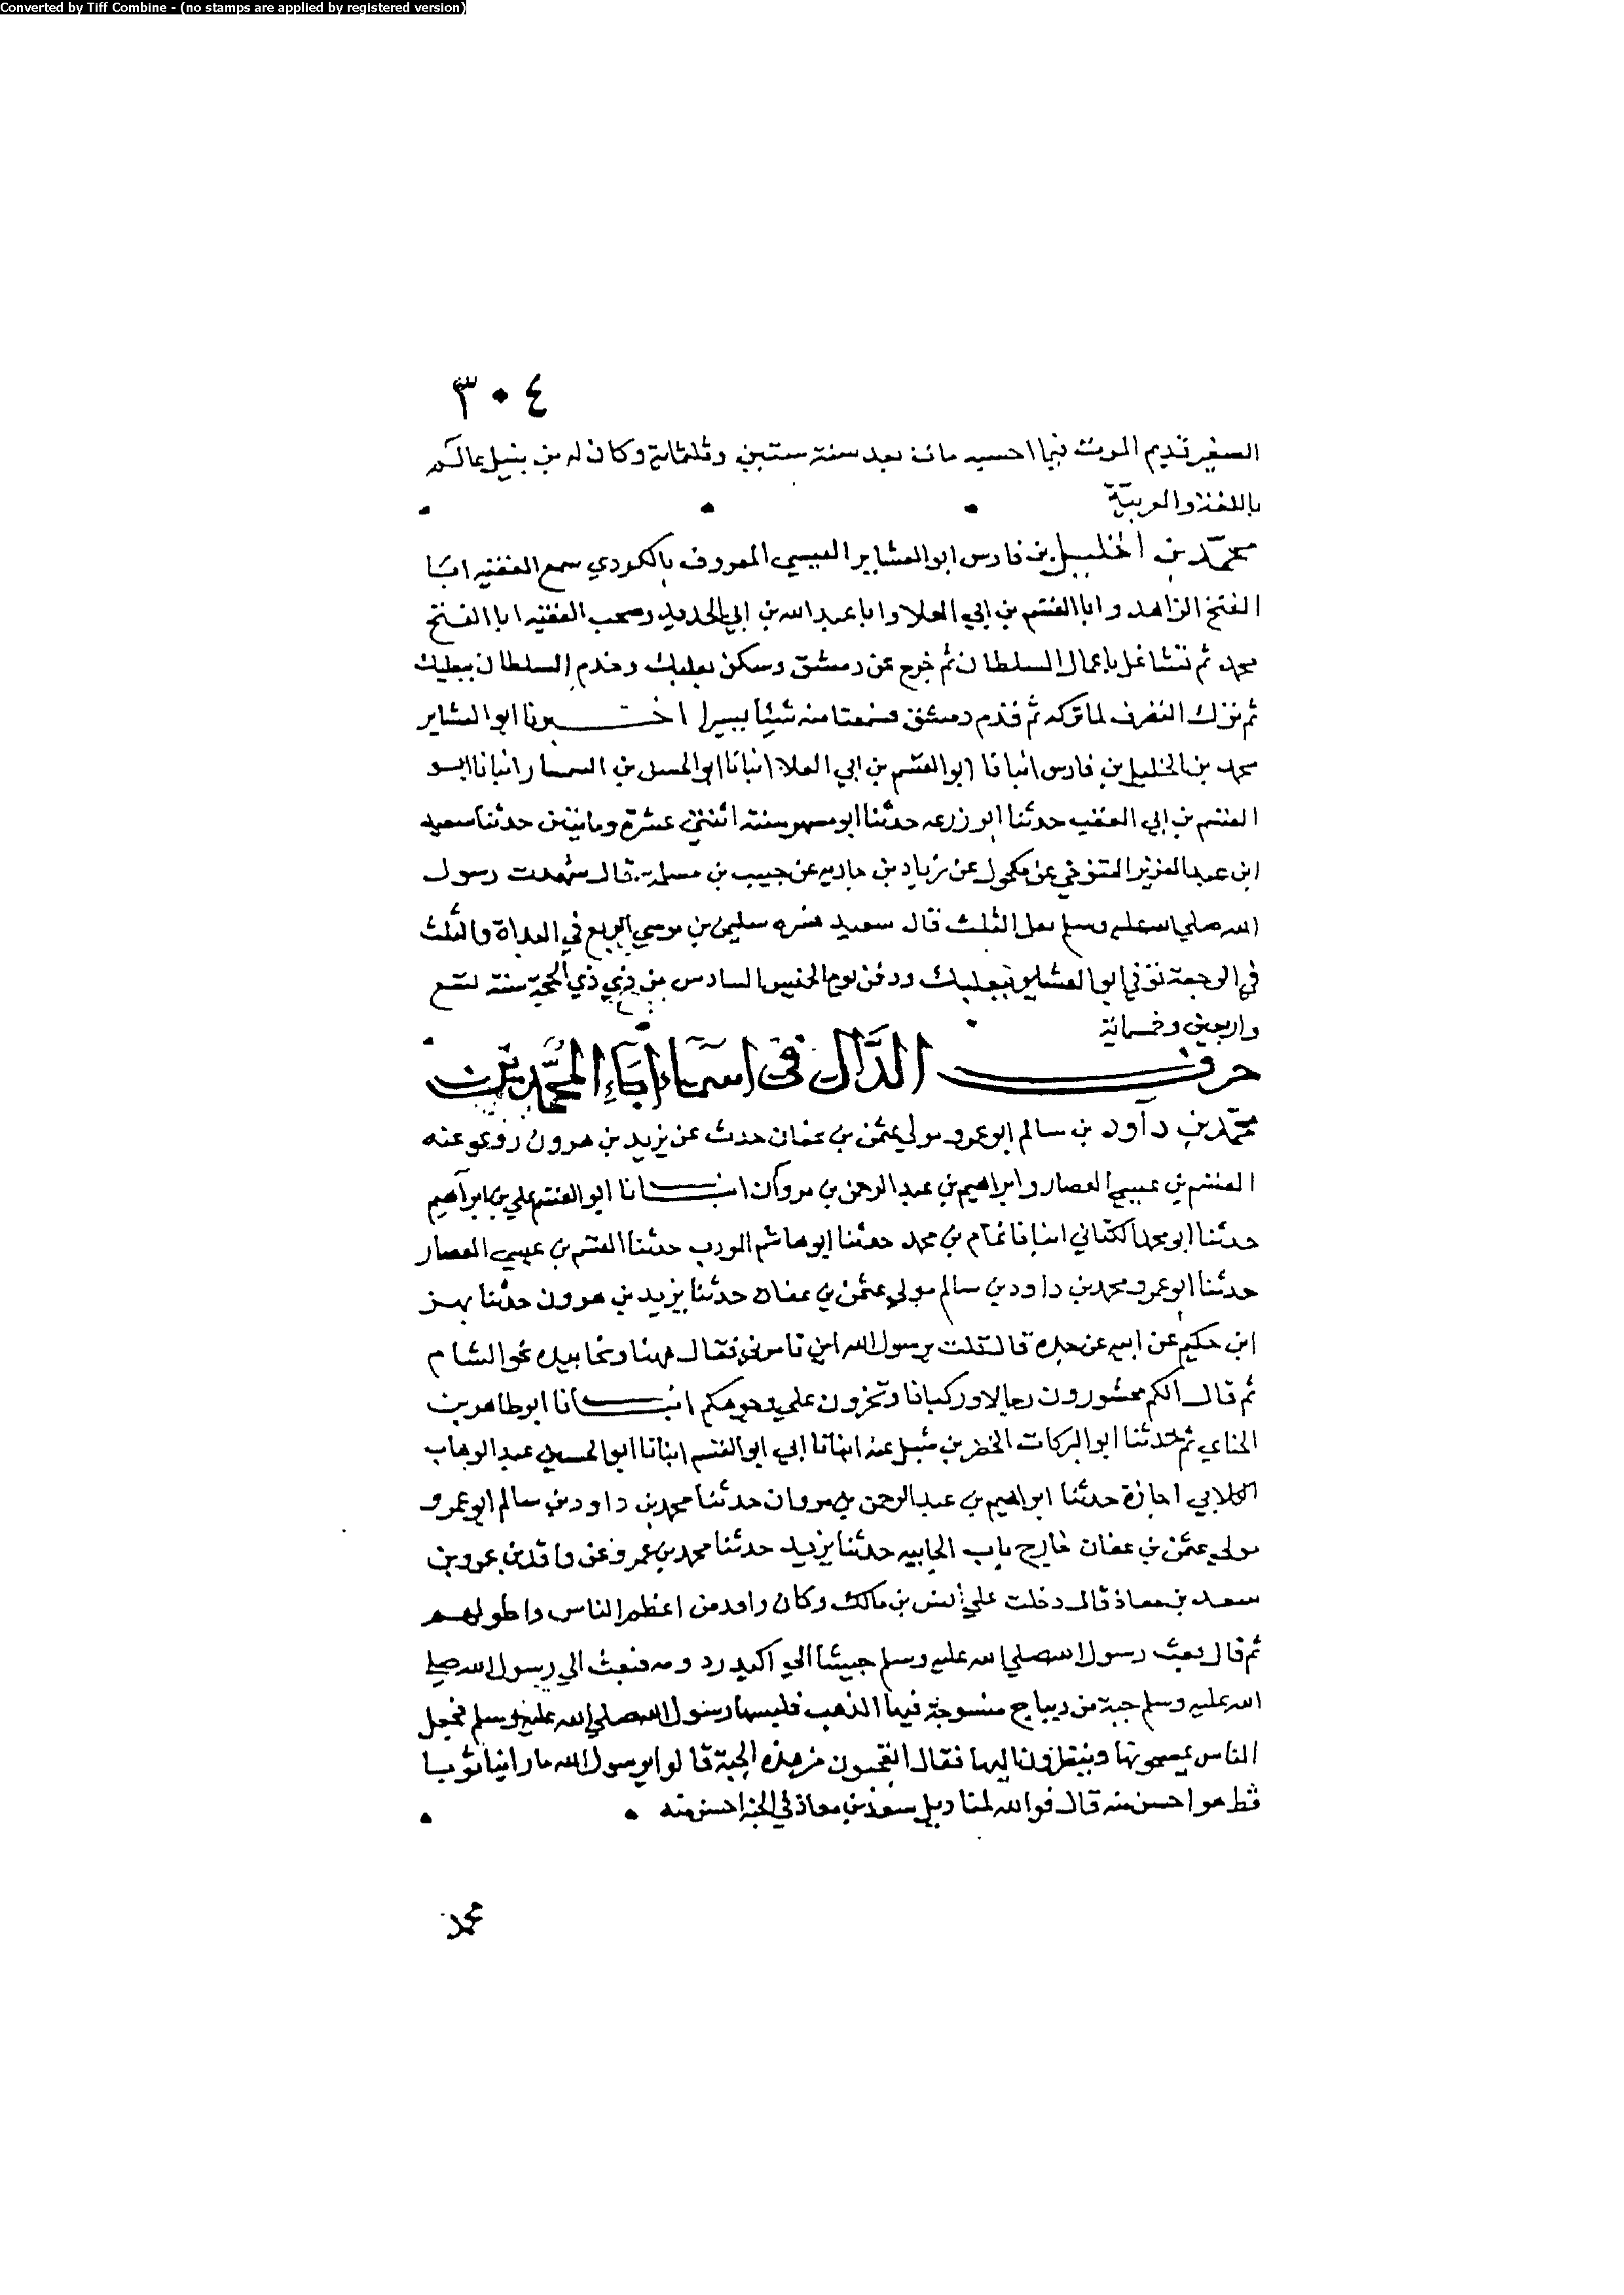 Converted by Tiff Combine - (no stamps are applied by registered version)
٣٠٤
الصغير قديم الموت فيما احسبه مات بعد سنة ستين وثلثماية وكان له من
باللغة والعربية
محمد بن الخليل بن فارس ابو العشاير العبسي المعروف بالكردي سمع الفقيه ابا
الفتح الزاهد وابا القسم بن ابي العلا وابا عبد الله بن ابي الحديد وصحب الفقيه ابا الفتح
محمد ثم تشاغل باعمال السلطان ثم خرج عن دمشق وسكن بعلبك وخدم السلطان ببعلبك
ثم ترك التصرف لما تركه ثم قدم دمشق وسمعنا منه شيئا يسيرا اخبرنا ابو العشاير
محمد بن الخليل بن فارس انبانا ابو القسم بن ابي العلا انبانا ابو الحسن بن السمسار انبانا ابو
القسم بن ابي العقب حدثنا ابو زرعه حدثنا ابو مسهر سنة اثنتي عشرة ومايتين حدثنا سعيد
ابن عبد العزيز التنوخي عن مكحول عن زياد بن جاريه عن حبيب بن مسلمة قال شهدت رسول
الله صلي الله عليه وسلم نفل الثلث قال سعيد فسره سليمن بن موسي الربع في البداة والثلث
في الرجعة توفي ابو العشاير ببعلبك ودفن يوم الخميس السادس من ذي ذي الحجة سنة تسع
واربعين وخمساية
حرف الدال في اسماء اباء المحمدين
محمد بن داود بن سالم ابو عمرو مولي عثمن بن عفان حدث عن يزيد بن هرون روي عنه
القسم بن عيسي العصار وابراهيم بن عبد الرحمن بن مروان انبانا ابو القسم علي بن ابراهيم
حدثنا ابو محمد الكتاني انبانا تمام بن محمد حدثنا ابو هاشم المودب حدثنا القسم بن عيسي العصار
حدثنا ابو عمرو محمد بن داود بن سالم مولي عثمن بن عفان حدثنا يزيد بن هرون حدثنا بهز
ابن حكيم عن ابيه عن جده قال قلت يرسول الله اين تامرني فقال ههنا ونحا بيده نحو الشام
ثم قال انكم محشورون رجالا وركبانا وتجرون علي وجوهكم انبانا ابو طاهر بن
الحناي ثم حدثنا ابو البركات الخضر بن شبل عنه انبانا ابي ابو القسم انبانا ابو الحسين عبد الوهاب
الكلابي اجازة حدثنا ابراهيم بن عبد الرحمن بن مروان حدثنا محمد بن داود بن سالم ابو عمرو
مولي عثمن بن عفان خارج باب الجابيه حدثنا يزيد حدثنا محمد بن عمرو عن واقد بن عمرو بن
سعد بن معاذ قال دخلت علي انس بن مالك وكان واقد من اعظم الناس واطولهم
ثم قال بعث رسول الله صلي الله عليه وسلم جيشا الي اكيدر دومه فبعث الي رسول الله صلي
الله عليه وسلم جبة من ديباج منسوجة فيها الذهب فلبسها رسول الله صلي الله عليه وسلم فجعل
الناس يمسحونها وينظرون اليها فقال اتعجبون من هذه الجبة قالوا يرسول الله ما راينا ثوبا
قط هو احسن منه قال فوالله لمناديل سعد بن معاذ في الجنة احسن منه
محمد